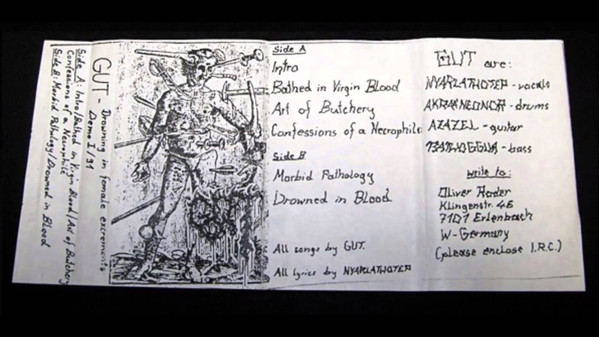 Side A: Intro/Bathed in Virgin Blood/Art of Butchery
Confessions of a Necrophile
Side B: Morbid Pathology/Drowned in Blood
GUT - Drowning in female excrements
Demo I/91
Side A
Intro
Bathed in Virgin Blood
Art of Butchery
Confessions of a Necrophile
Side B
Morbid Pathology
Drowned in Blood
All songs by GUT.
All lyrics by NYARLATHOTEP
GUT are:
NYARLATHOTEP - vocals
- drums
AZAZEL - guitar
- bass
write to:
Oliver
Klingenstr. 46
7101 Erlenbach
W-Germany
(please enclose I.R.C.)